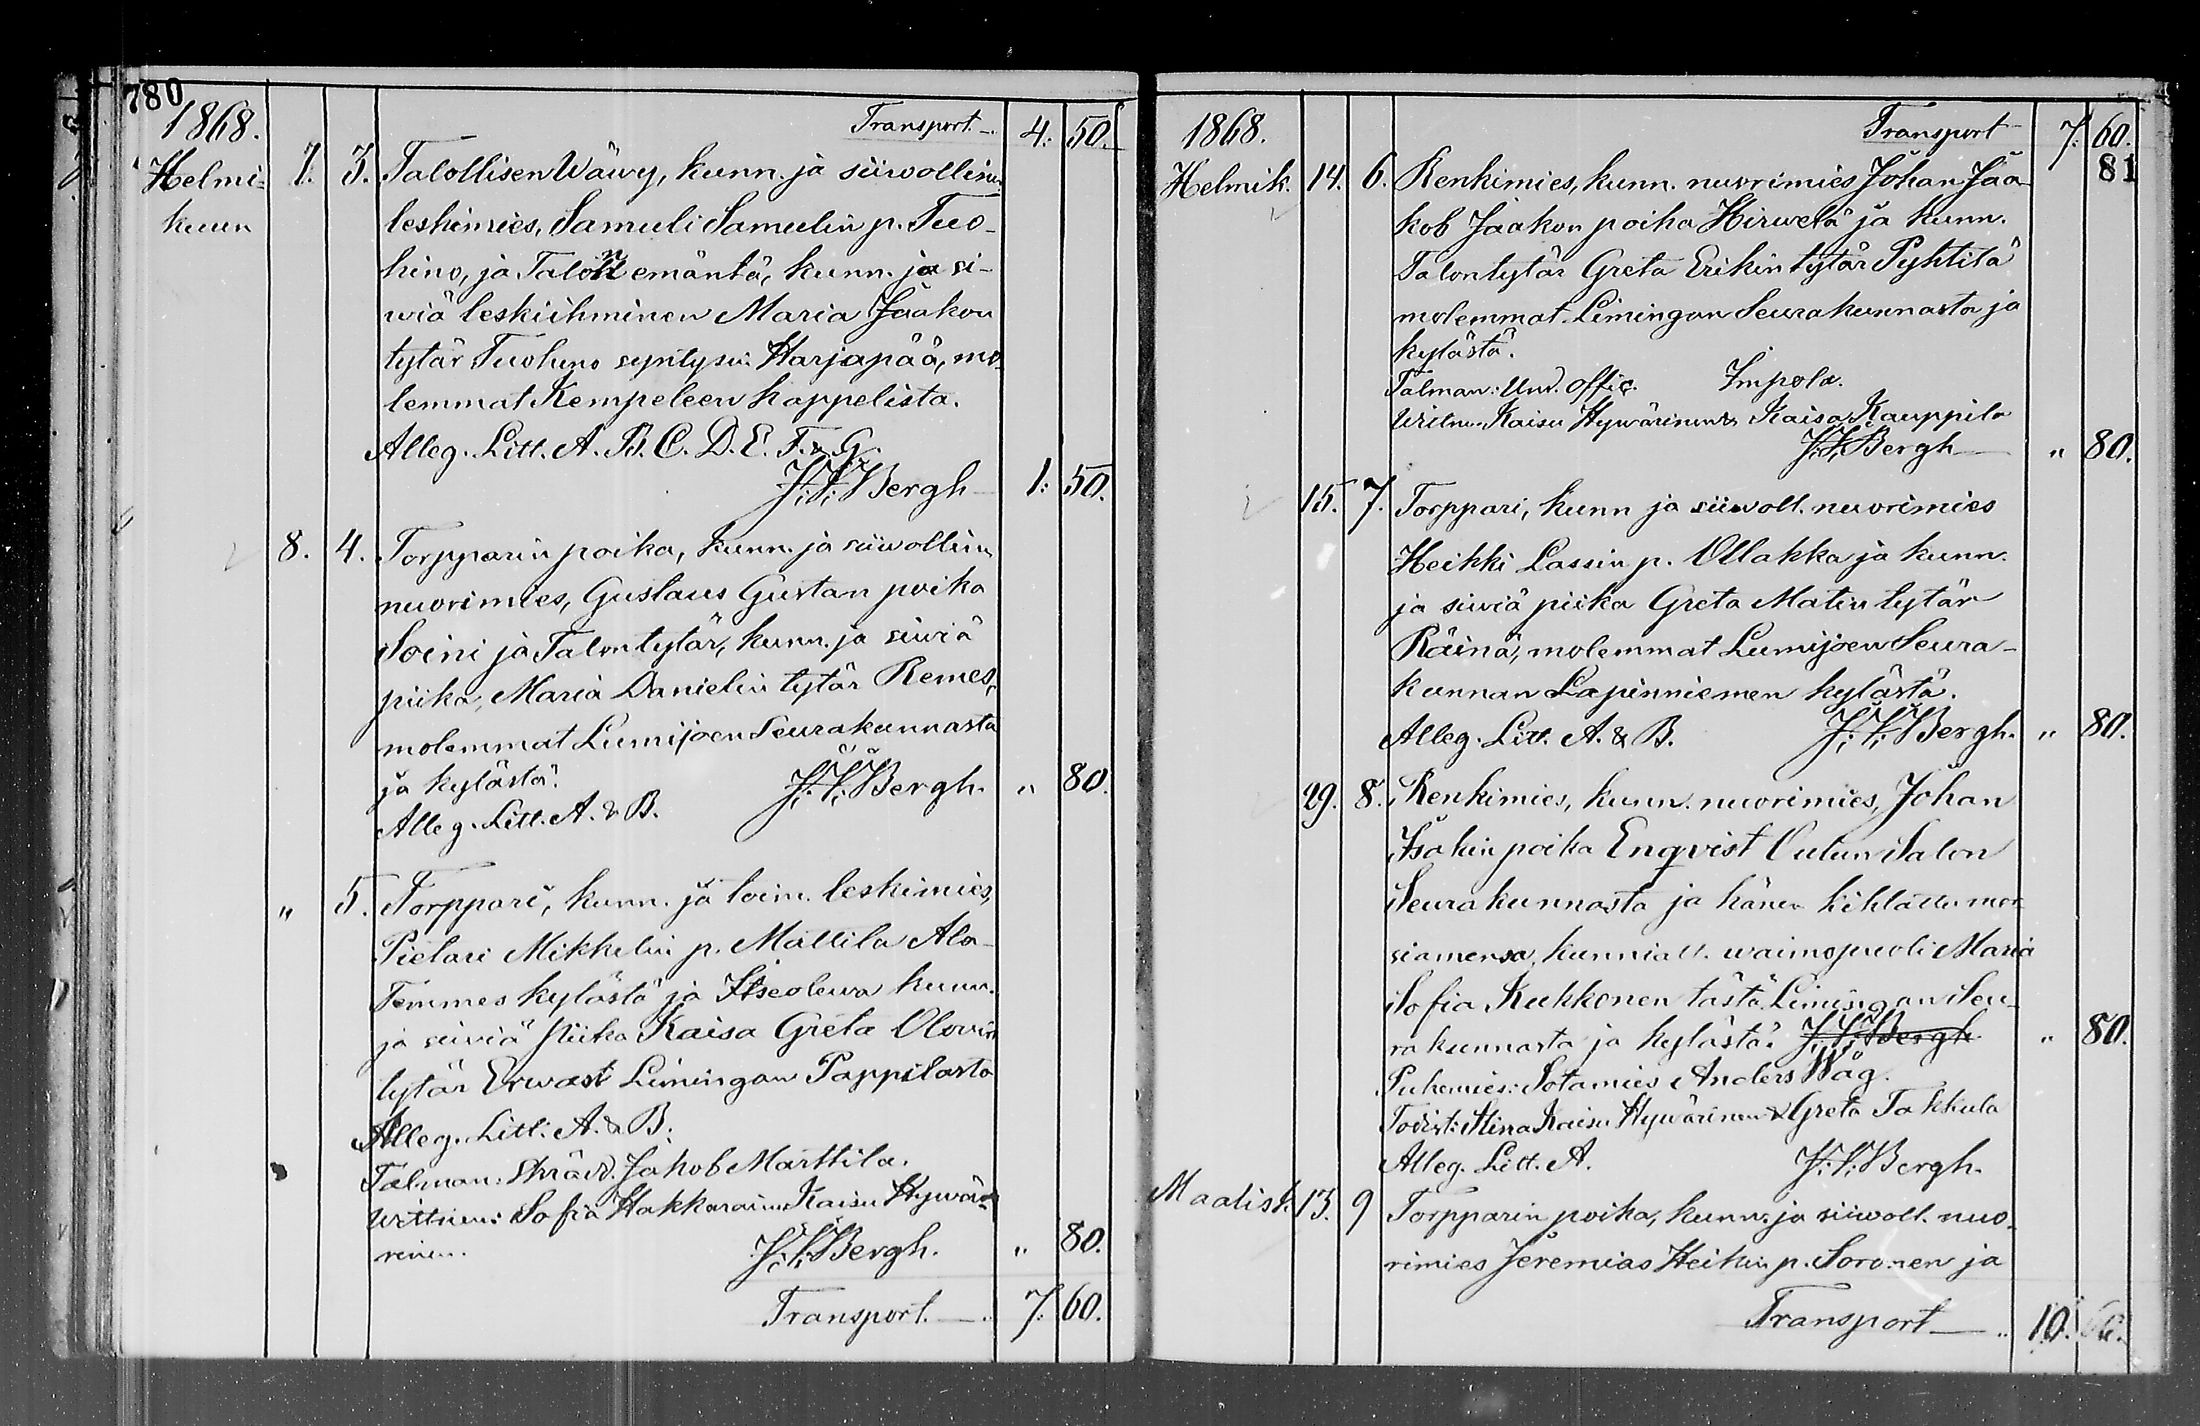 780
1868.
Transport 4: 50.
Helmi- 1. 3. Talollisen Wäwy, kunn. ja siiwollinen
kuun leskimies, Samuli Samulin p. Tuo-
hino, ja Talon emäntä, kunn. ja si-
wiä leskiihminen Maria Jaakon
tytär Tuohino syntysin Harjapää, mo-
lemmat Kempeleen kappelista.
Alleg. Litt. A. B. C. D. E. F. & G.
J. V. Bergh 1: 50.
8. 4. Torpparin poika, kunn. ja siiwollinen
nuorimies, Gustavus Gustan poika
Soini ja Talon tytär, kunn. ja siwiä
piika, Maria Danielin tytär Remes,
molemmat Lumijoen Seurakunnasta
ja kylästä. J. V. Bergh. " 80.
Alleg. Litt. A. & B.
" 5. Torppari, kunn. ja toim. leskimies,
Pietari Mikkelin p. Mattila Ala-
Temmes kylästä ja Itseolewa kunn.
ja siwiä piika Kaisa Greta Olowin
tytär Erwast Limingan Pappilasta
Alleg. Litt: A. & B.
Talman: Skrädd. Jakob Marttila.
Wittnen: Sofia Hakkarainen Kaisu Hywä-
rinen. J. V. Bergh. " 80.
Transport 7: 60.
1868.
Transport 7: 60.
81
Helmik. 14. 6. Renkimies, kunn. nuorimies Johan Jaa-
kob Jaakon poika Hirwelä ja kunn.
Talontytär Greta Erikin tytär Pyhtilä
molemmat Limingan Seurakunnasta ja
kylästä.
Talman: Und. Offic. Impola.
Wittn. Kaisu Hywärinen & Kaisa Kauppila
J. V. Bergh " 80.
15. 7. Torppari, kunn ja siiwoll. nuorimies
Heikki Lassin p. Ollakka ja kunn.
ja siwiä piika Greta Matin tytär
Räinä, molemmat Lumijoen Seura-
kunnan Lapinniemen kylästä.
Alleg. Litt. A. & B. J. V. Bergh. " 80.
29. 8. Renkimies, kunn. nuorimies, Johan
Isakin poika Enqvist Oulun Salon
Seurakunnasta ja hänen kihlattu mor-
siamensa, kunniall. waimopuoli Maria
Sofia Kukkonen tästä Limingan Seu-
rakunnasta ja kylästä. J. V. Bergh " 80.
Puhemies: Sotamies Anders Wåg.
Todist: Stina Kaisu Hywärinen & Greta Takkula
Alleg. Litt. A. J. V. Bergh.
Maalisk. 13. 9 Torpparin poika, kunn. ja siiwoll. nuo-
rimies Jeremias Heikin p. Soronen ja
Transport 10.